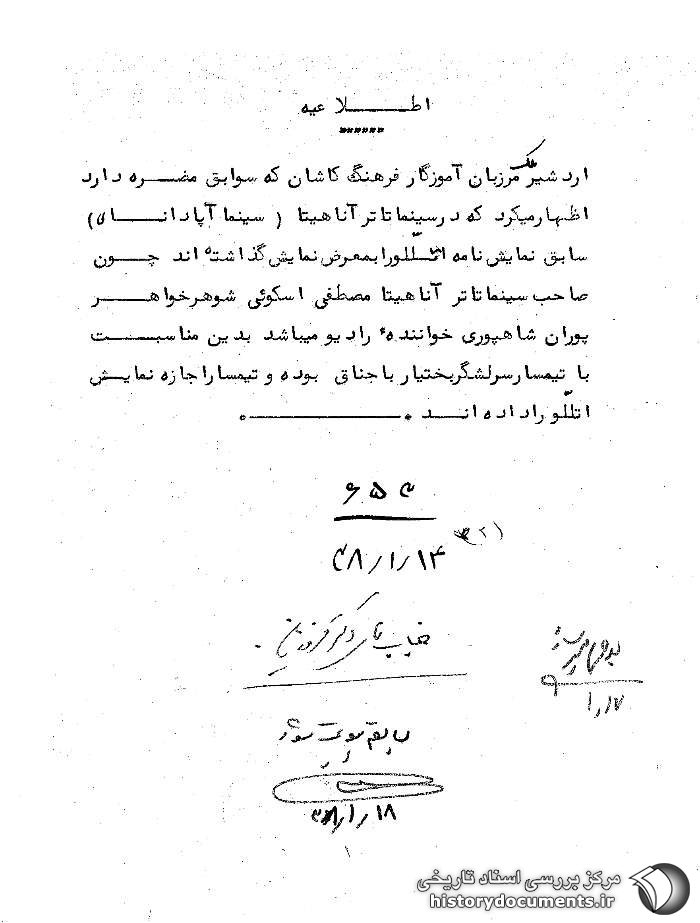 اطـــلاعیه
اردشیر ملک مرزبان آموزگار فرهنگ کاشان که سوابق مضـره دارد
اظهارمیکرد که درسینما تاترآناهیتا ( سینما آپادانـای )
سابق نمایش نامه اتـللورا بمعرض نمایش گذاشته اند چـون
صاحب سینما تاتر آناهیتا مصطفی اسکوئی شوهرخواهـر
پوران شاهپوری خوانندهٔ رادیو میباشد بدین مناسبـت
با تیمسارسرلشگربختیار باجناق بوده و تیمساراجازه نمایش
اتللّو راداده انـد .
۶۵۳
۱۴ر۱ر۳۸
جناب آقای دکتر
۱ر۱۷
سابقه
۱۸ر۱ر۳۸
۱
مرکز بررسی اسناد تاریخی
historydocuments.ir